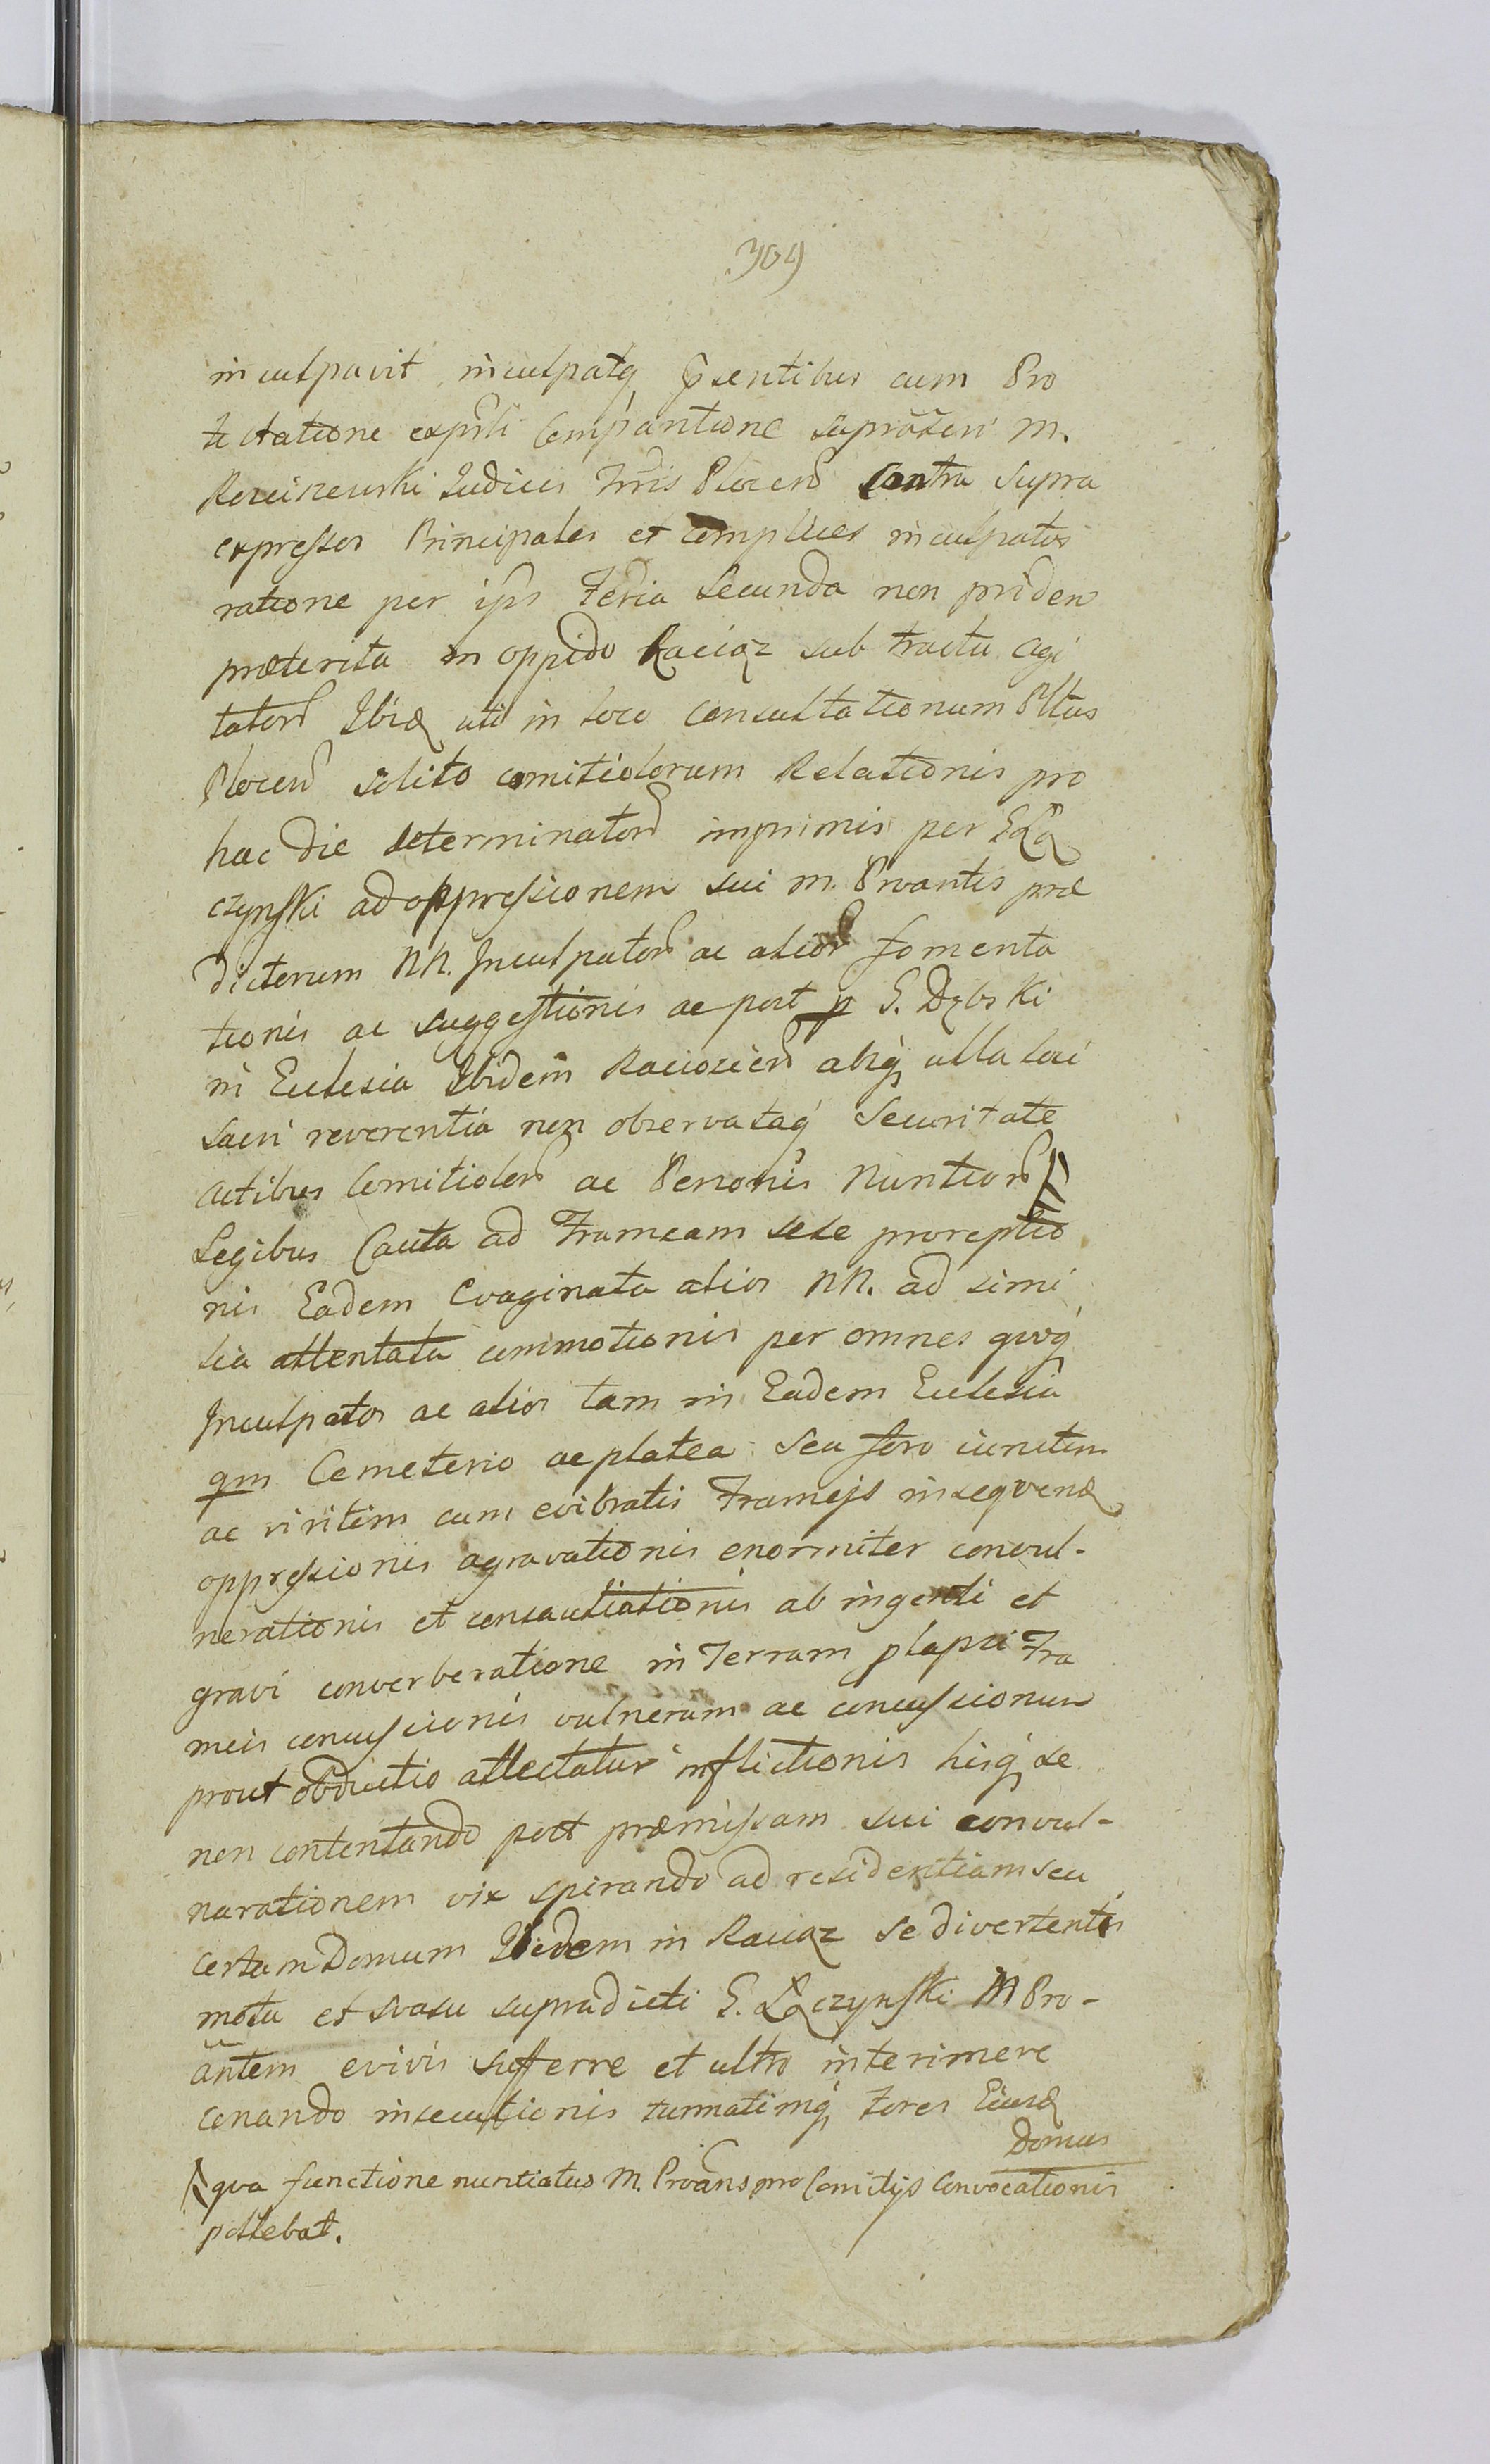 309
inculpavit inculpatq p̃sentibus cum Pro
testatione exp̃sti Comp̃antione suprascri M.
Rosciszewski Judicis Trris Plocen̄ Contra Supra
expressos Principales et complices inculpatos
ratione per ip̃s Feria Secunda non priden
præterita in oppido Raciąz sub tractu Agi
tator̃ Ibiq uti in loco consultationum Pltus
Plocen̄ solito comitiolorum Relationis pro
hac die determinator̃ imprimis per G Łą
czynski ad oppressionem sui M. Proantis præ
dictorum NN. Inculpator̃ ac alior̃ fomenta
tionis ac suggestionis ac post p G. Dębski
in Ecclesia Ibidem Raciozien̄ absq ulla loci
sacri reverentia non observataq Securitate
Actibus Comitiolor̃ ac Personis Nuntior̃
Legibus Cauta ad Frameam sese proreptio
nis Eadem Evaginata alios NN. ad simi
lia attentata commotionis per omnes quoq
Inculpatos ac alios tam in Eadem Ecclesia
qm Cemeterio ac platea seu foro iunctim
ac viritim cum evibratis Frameis insequend
oppressionis agravationis enormiter convul-
nerationis et consautiationis ab ingenti et
gravi converberatione in Terram plapsi Fra
meis concussionis vulnerum ac concussionum
prout obductio attestatur inflictionis hisq se
non contentando post præmissam sui convul-
narationem vix spirando ad residentiam seu
certam Domum Ibidem in Raciąz se divertentis
motu et svasu supradicti G. Łączynski M Pro-
antem e vivis sufferre et ultro interimere
conando insecutionis turmatimq fores Eiusd
Domus
qua functione nuntiatus M. Proans pro Comitijs Convocationis
pollebat.